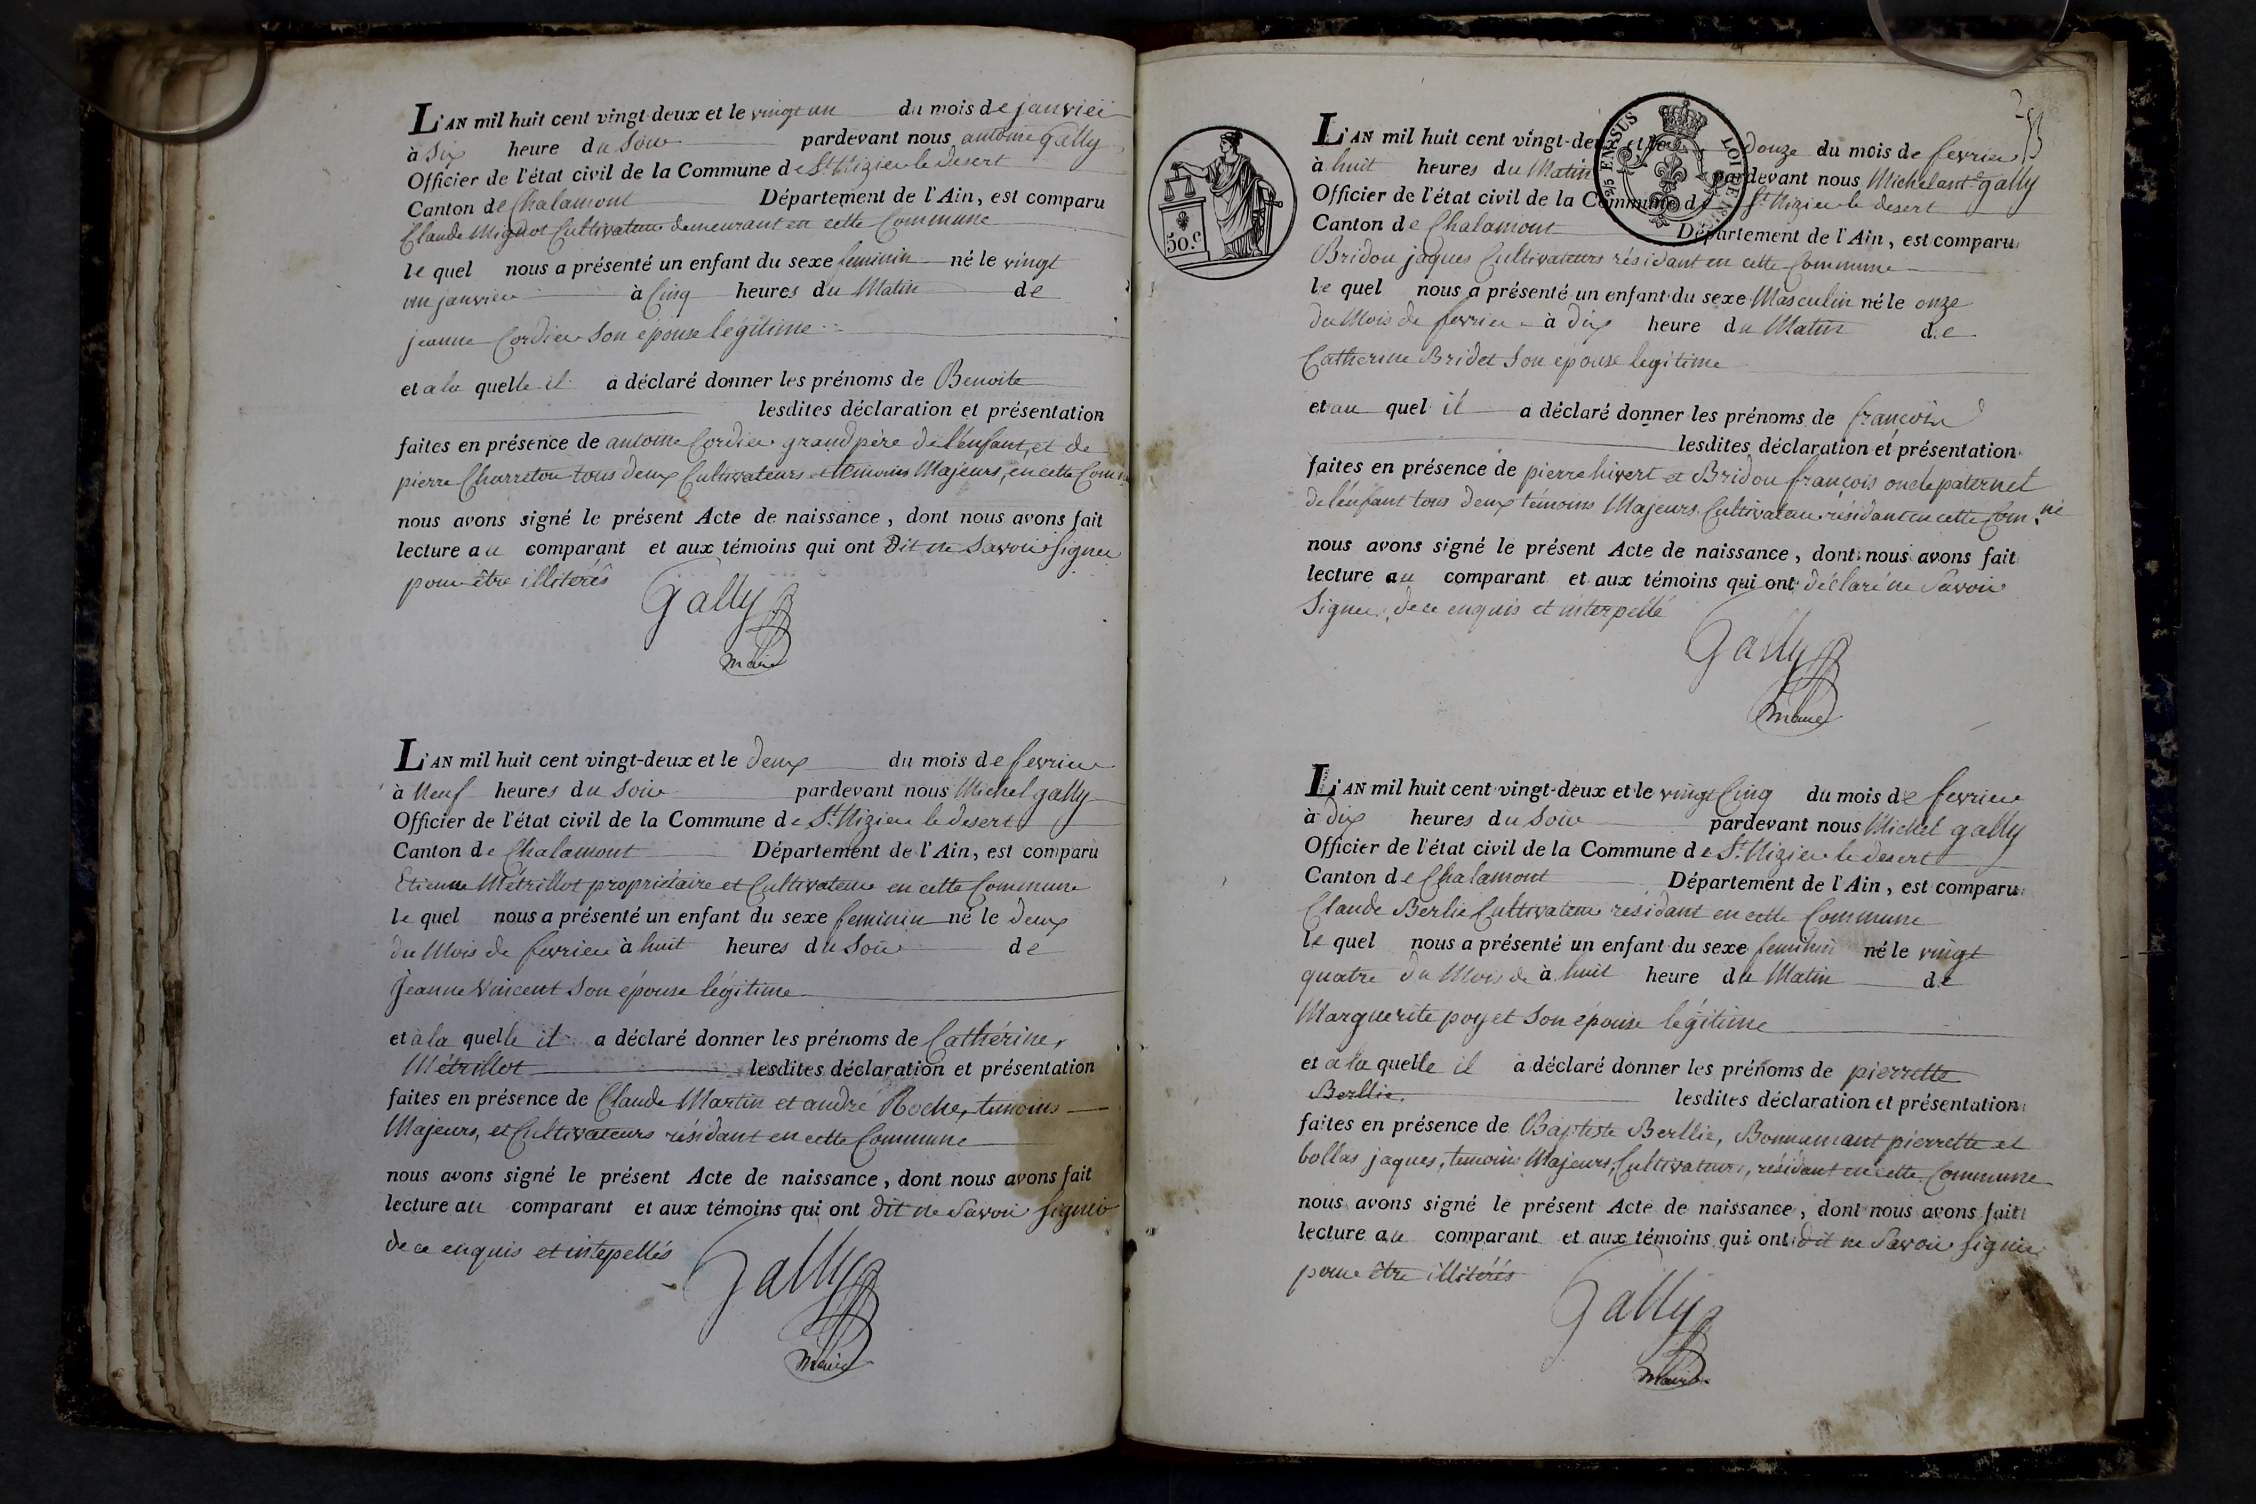 L'AN mil huit cent vingt-deux et le vingt un du mois de janvier
à Six heure du Soir pardevant nous antoine Gally
Officier de l'état civil de la Commune de St Nizier le desert
Canton de Chalamont Département de l'Ain, est comparu
Claude Mignot Cultivateur demeurant en cette Commune
le quel nous a présenté un enfant du sexe feminin né le vingt
un janvier à Cinq heures du Matin de
jeanne Cordier Son épouse légitime
et a la quelle il a déclaré donner les prénoms de Benoite
lesdites déclaration et présentation
faites en présence de antoine Cordier grand père de l'enfant, et de
pierre Charreton tous deux Cultivateurs et témoins Majeurs, en cette Com
nous avons signé le présent Acte de naissance, dont nous avons fait
lecture au comparant et aux témoins qui ont Dit ne Savoir Signer
pour être illitérés
Gally
maire
L'AN mil huit cent vingt-deux et le deux du mois de fevrier
à Neuf heures du Soir pardevant nous Michel gally
Officier de l'état civil de la Commune de St Nizier le desert
Canton de Chalamont Département de l'Ain, est comparu
Etienne Métrillot propriétaire et Cultivateur en cette Commune
le quel nous a présenté un enfant du sexe feminin né le deux
du Mois de fevrier à huit heures du Soir de
Jeanne Vincent Son épouse légitime
et a la quelle il a déclaré donner les prénoms de Cathérine,
Métrillot lesdites déclaration et présentation
faites en présence de Claude Martin et andré Roche, temoins
Majeurs, et Cultivateurs résidant en cette Commune
nous avons signé le présent Acte de naissance, dont nous avons fait
lecture au comparant et aux témoins qui ont dit ne Savoir Signer
de ce enquis et intepellés
Gally
maire
50.c
ENSUS LOI DE
L'AN mil huit cent vingt-deux et le douze du mois de fevrier
à huit heures du Matin pardevant nous Michel ant.e gally
Officier de l'état civil de la Commune de St Nizier le desert
Canton de Chalamont Département de l'Ain, est comparu
Bridou jaques Cultivateurs résidant en cette Commune
le quel nous a présenté un enfant du sexe Masculin né le onze
du Mois de fevrier à dix heure du Matin de
Catherine Bridet Son épouse legitime
et au quel il a déclaré donner les prénoms de françois
lesdites déclaration et présentation
faites en présence de pierre hivert et Bridou françois oncle paternel
de l'enfant tous deux témoins Majeurs Cultivateur résidant en cette Com.ne
nous avons signé le présent Acte de naissance, dont nous avons fait
lecture au comparant et aux témoins qui ont déclaré ne Savoir
Signer, de ce enquis et interpéllé
Gally
maire
L'AN mil huit cent vingt-deux et le vingt Cinq du mois de fevrier
à dix heures du Soir pardevant nous Michel gally
Officier de l'état civil de la Commune de St Nizier le desert
Canton de Chalamont Département de l'Ain, est comparu
Claude Berlie Cultivateur résidant en cette Commune
le quel nous a présenté un enfant du sexe feminin né le vingt
quatre du Mois de à huit heure du Matin de
Marguerite poyet Son épouse légitime
et a la quelle il a déclaré donner les prénoms de pierrette
Berllie. lesdites déclaration et présentation
faites en présence de Baptiste Berllie, Bonnamant pierrette et
bollas jaques, temoins Majeurs, Cultivateurs, résidant en cette Commune
nous avons signé le présent Acte de naissance, dont nous avons fait
lecture au comparant et aux témoins qui ont dit ne Savoir signer
pour être illitérés
Gally
maire